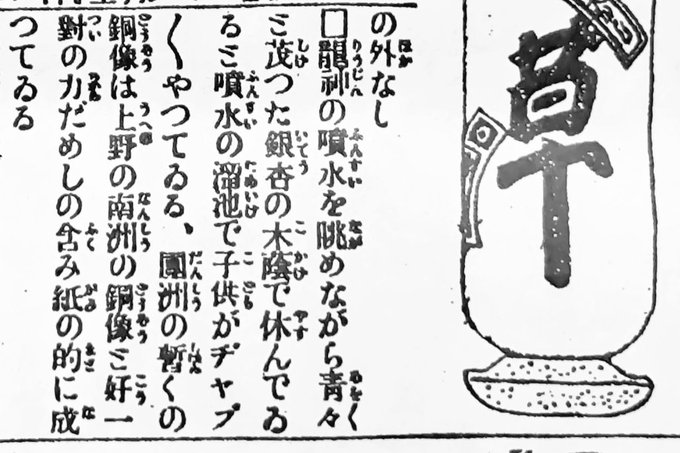 草
の外なし
□龍神の噴水を眺めながら青々
と茂つた銀杏の木蔭で休んでゐ
ると噴水の溜池で子供がヂャブ
〱やつてゐる、團洲の暫くの
銅像は上野の南洲の銅像と好一
對の力だめしの含み紙の的に成
つてゐる